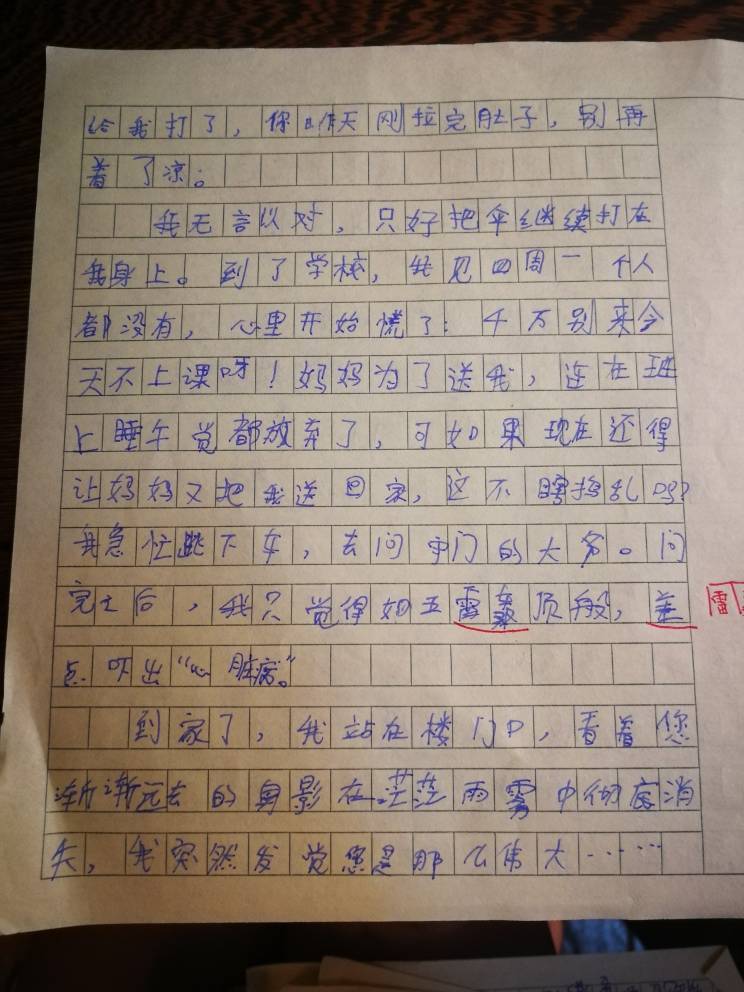 给我打了，你昨天刚拉完肚子，别再
着了凉。
我无言以对，只好把伞继续打在
我身上。到了学校，我见四周一个人
都没有，心里开始慌了：千万别来今
天不上课呀！妈妈为了送我，连在班
上睡午觉都放弃了，可如果现在还得
让妈妈又把我送回家，这不瞎捣乱吗？
我急忙跳下车，去问守门的大爷。问
完之后，我只觉得如五雷轰顶般，差
雷
点吓出“心脏病。”
到家了，我站在楼门口，看着您
渐渐远去的身影在茫茫雨雾中彻底消
失，我突然发觉您是那么伟大……